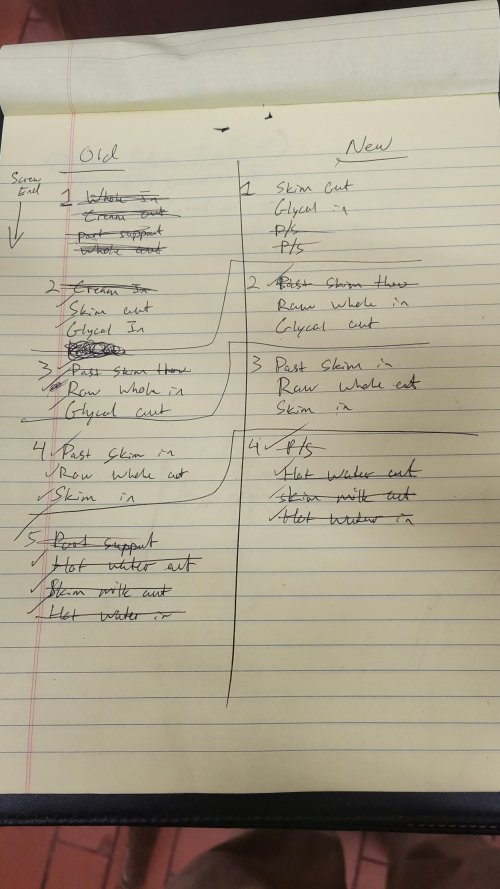 Old
Screw
End
1 Whole In
Cream out
Port support
Whole out
2 Cream In
Skim out
Glycol In
3 Past Skim thru
Raw whole in
Glycol out
4 Past Skim in
Raw whole out
Skim in
5 Port support
Hot water out
Skim milk out
Hot water in
New
1 Skim out
Glycol in
P/S
P/S
2 Past Skim thru
Raw whole in
Glycol out
3 Past Skim in
Raw whole out
Skim in
4 P/S
Hot water out
skim milk out
Hot water in